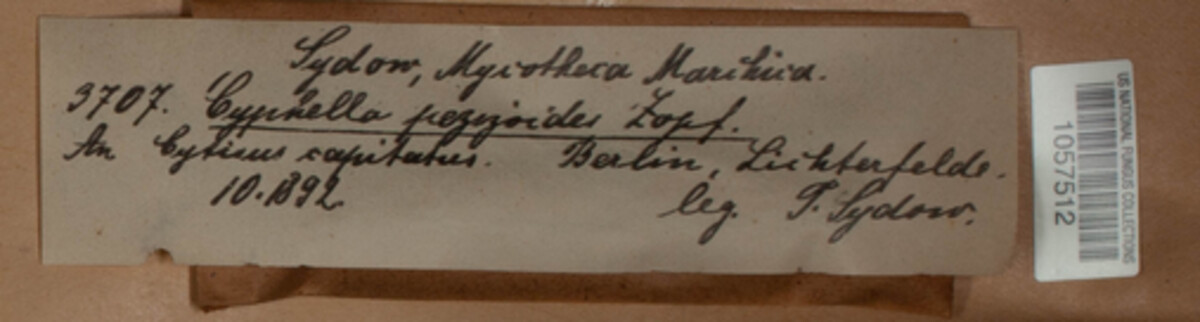 Sydow, Mycotheca Marchica.
3707. Cyphella pezizoides Zopf.
An Cytisus capitatus. Berlin, Lichterfelde.
10.1892. leg. P. Sydow.
US NATIONAL FUNGUS COLLECTIONS
1057512